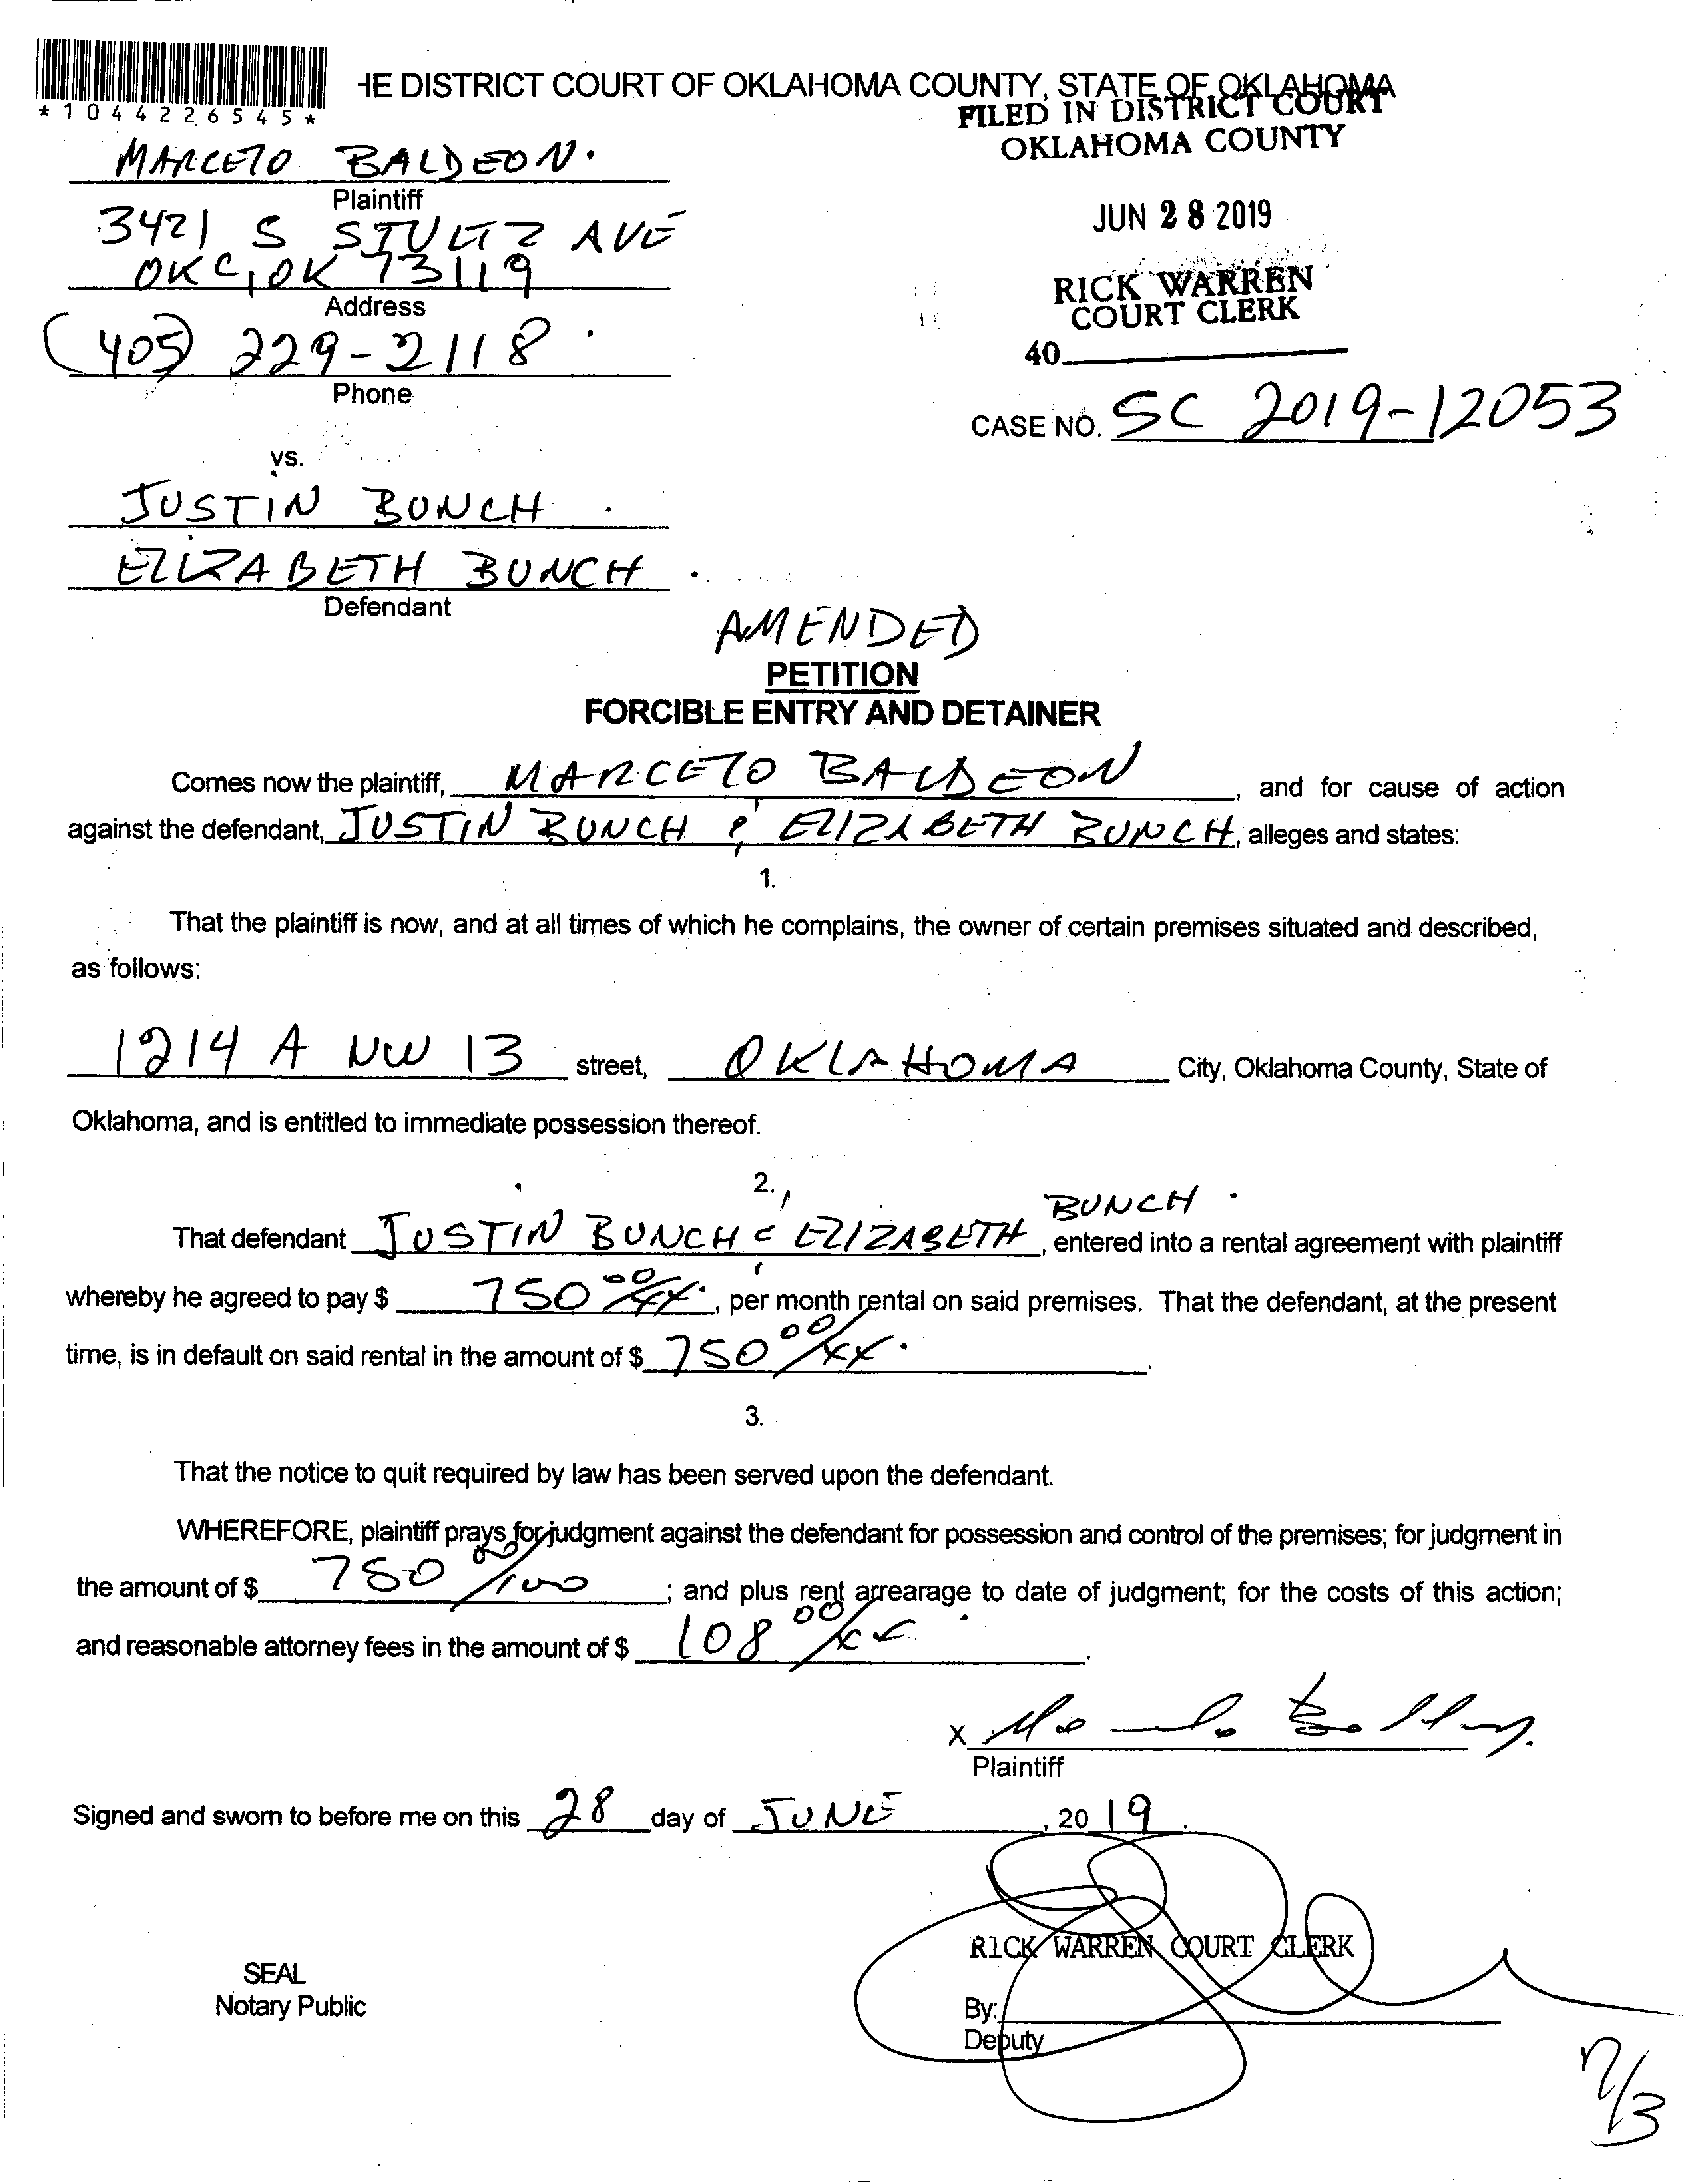 HE DISTRICT COURT OF OKLAHOMA COUNTY, STATE OF OKLAHOMA
*1044226545*
FILED IN DISTRICT COURT
OKLAHOMA COUNTY
JUN 28 2019
RICK WARREN
COURT CLERK
40
CASE NO. SC 2019-12053
MARCELO BALDEON.
Plaintiff
3421 S AVE
OKC, OK 73119
Address
(405) 229-2118
Phone
vs.
JUSTIN BUNCH
ELIZABETH BUNCH
Defendant
AMENDED
PETITION
FORCIBLE ENTRY AND DETAINER
Comes now the plaintiff, MARCELO BALDEON, and for cause of action
against the defendant, JUSTIN BUNCH & ELIZABETH BUNCH, alleges and states:
1.
That the plaintiff is now, and at all times of which he complains, the owner of certain premises situated and described,
as follows:
1214 A NW 13 street, OKLAHOMA City, Oklahoma County, State of
Oklahoma, and is entitled to immediate possession thereof.
2.
BUNCH
That defendant JUSTIN BUNCH & ELIZABETH, entered into a rental agreement with plaintiff
whereby he agreed to pay $ 750 00/xx, per month rental on said premises. That the defendant, at the present
time, is in default on said rental in the amount of $ 750 00/xx.
3.
That the notice to quit required by law has been served upon the defendant.
WHEREFORE, plaintiff prays for judgment against the defendant for possession and control of the premises; for judgment in
the amount of $ 750 00/100; and plus rent arrearage to date of judgment; for the costs of this action;
and reasonable attorney fees in the amount of $ 108 00/xx.
X
Plaintiff
Signed and sworn to before me on this 28 day of JUNE, 2019.
RICK WARREN COURT CLERK
SEAL
Notary Public
By:
Deputy
7/3